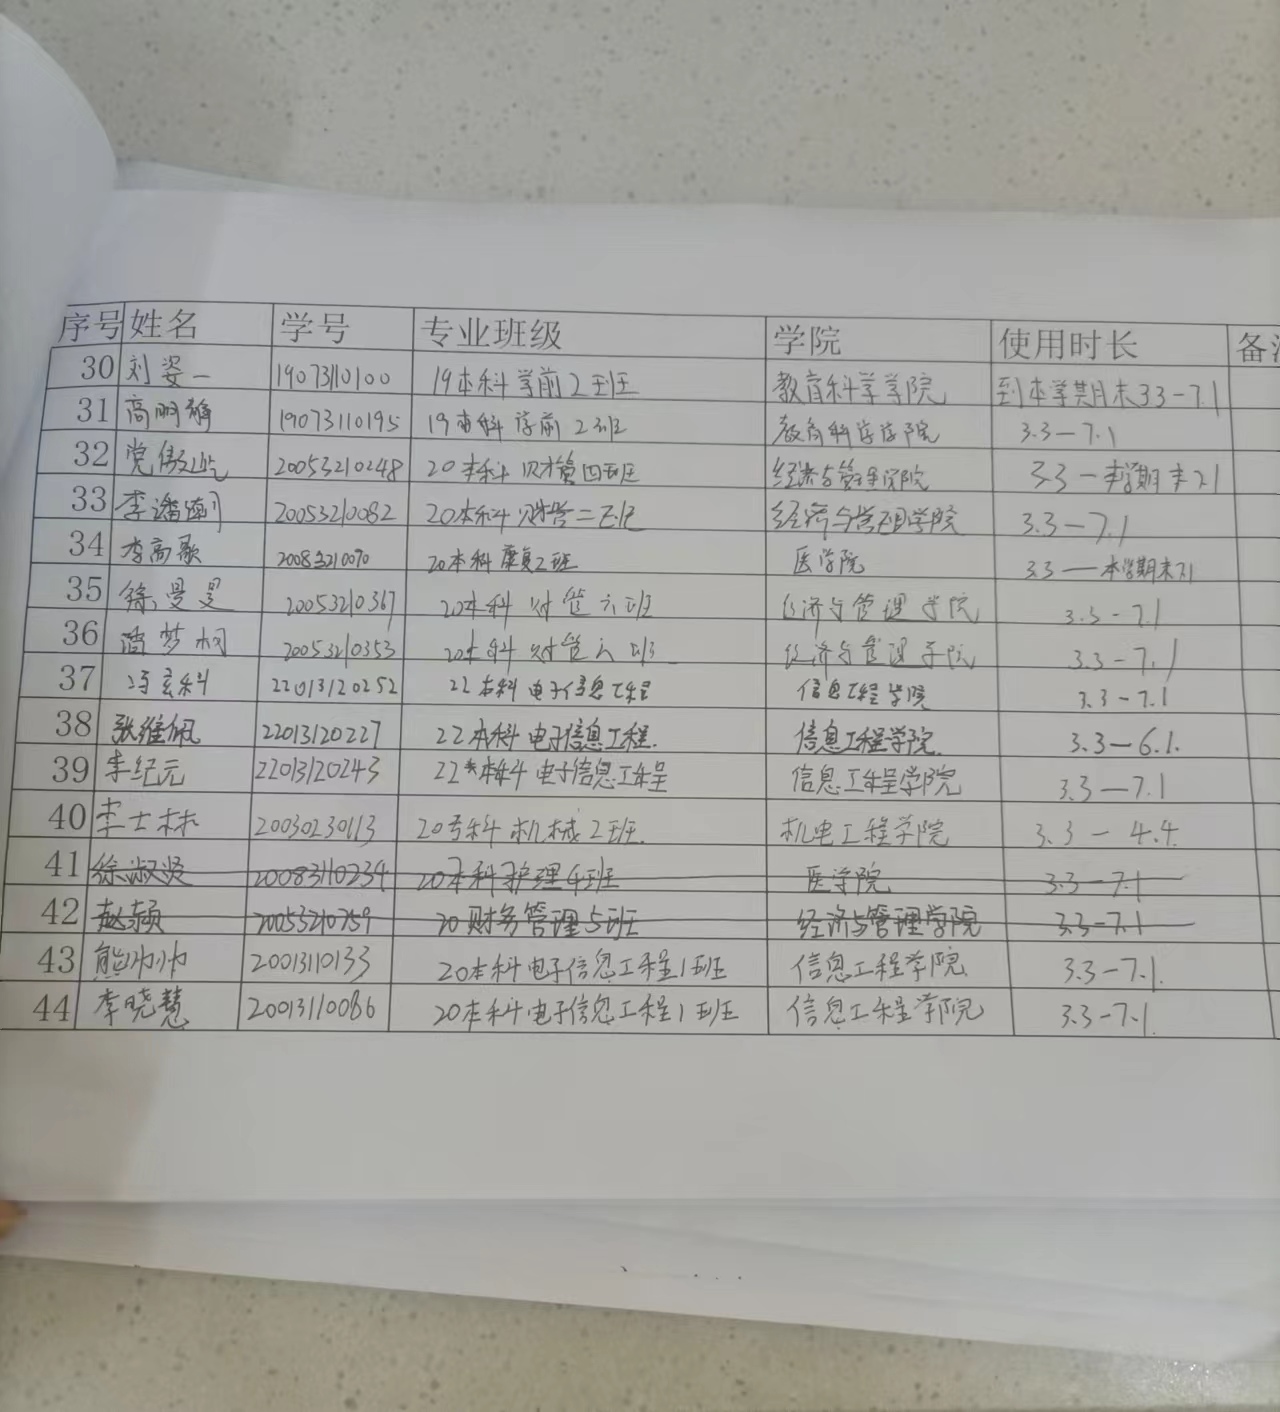 序号 姓名 学号 专业班级 学院 使用时长 备
30 刘姿一 19073110100 19本科学前2班 教育科学学院 到本学期末3.3-7.1
31 高明 19073110195 19本科学前2班 教育科学学院 3.3-7.1
32 党 20053210248 20本科财管四班 经济与管理学院 3.3-本学期末7.1
33 李潘 20053210082 20本科财管二班 经济与管理学院 3.3-7.1
34 李高歌 20083210070 20本科康复2班 医学院 3.3-本学期末7.1
35 徐曼曼 20053210367 20本科财管六班 经济与管理学院 3.3-7.1
36 梦柯 20053210353 20本科财管六班 经济与管理学院 3.3-7.1
37 冯玄科 22013120252 22本科电子信息工程 信息工程学院 3.3-7.1
38 张维佩 22013120227 22本科电子信息工程. 信息工程学院. 3.3-6.1.
39 李纪元 22013120243 22本科电子信息工程 信息工程学院 3.3-7.1
40 李士林 20030230113 20专科机械2班. 机电工程学院 3.3-4.4.
41 徐淑贤 20083110234 20本科护理4班 医学院 3.3-7.1
42 赵颖 20053210759 20财务管理5班 经济与管理学院 3.3-7.1
43 熊帅帅 20013110133 20本科电子信息工程1班 信息工程学院 3.3-7.1.
44 李晓慧 20013110086 20本科电子信息工程1班 信息工程学院 3.3-7.1.